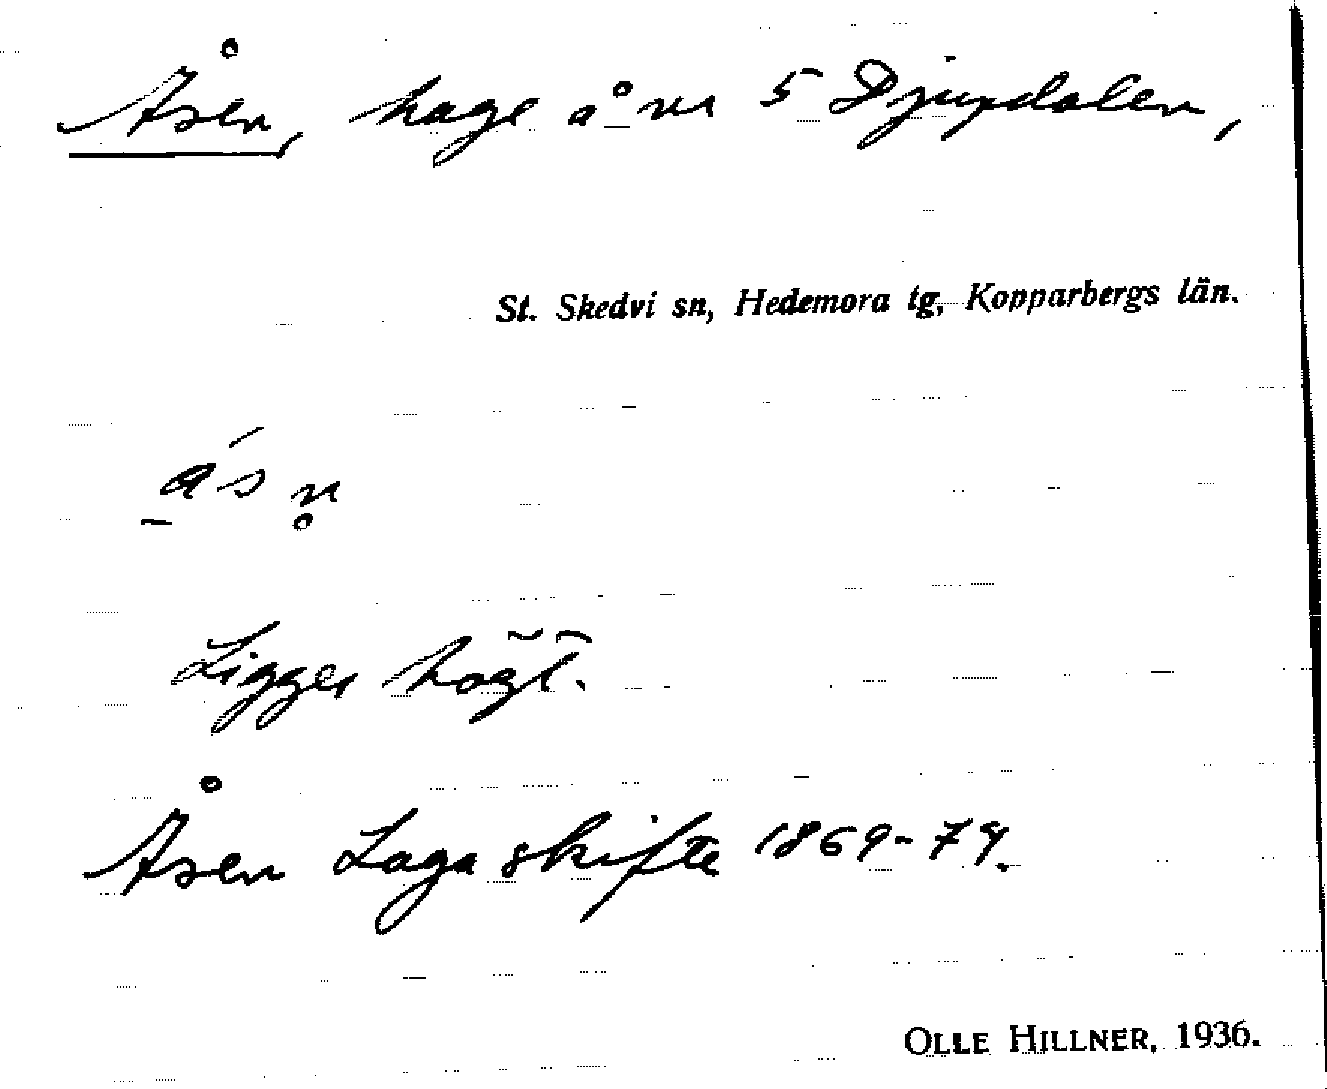 Åsen, hage å nr 5 Djupdalen,
St. Skedvi sn, Hedemora tg, Kopparbergs län.
a̠´sn̥
Ligger högt.
Åsen Laga skifte 1869-79.
OLLE HILLNER, 1936.